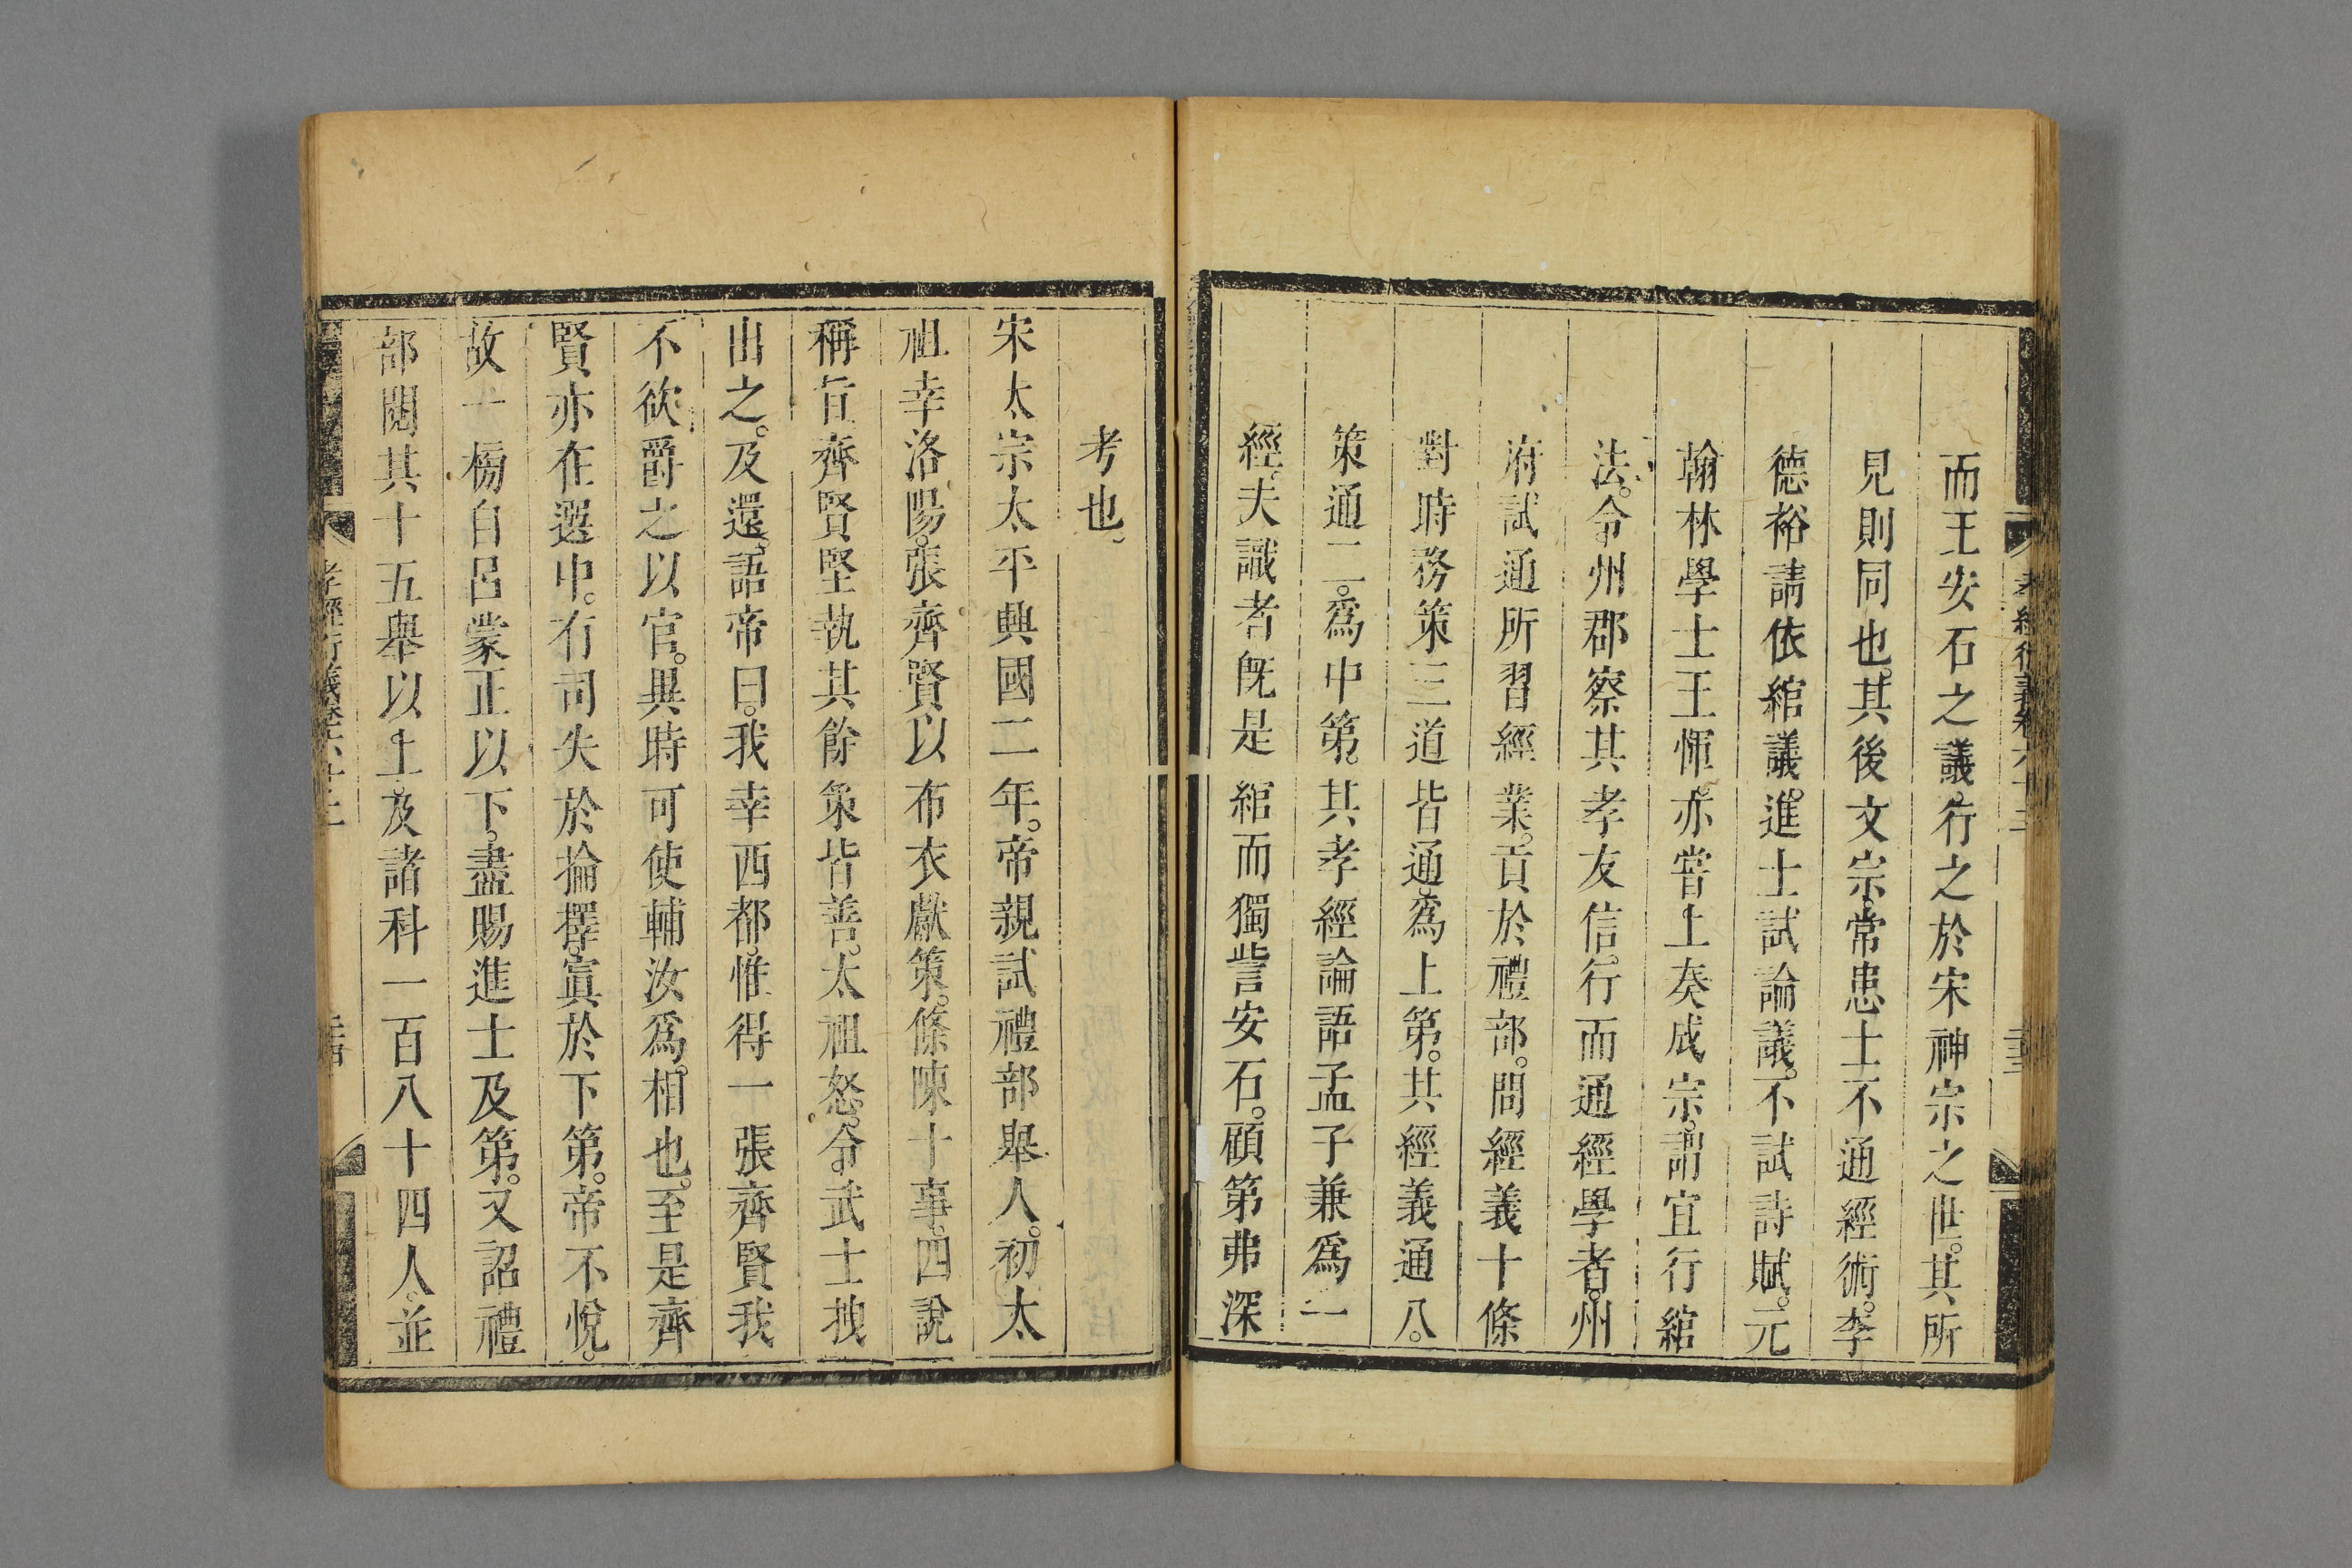 而王安石之議。行之於宋神宗之世。其所
見則同也。其後文宗。常患士不通經術。李
德裕請依綰議。進士試論議。不試詩賦。元
翰林學士王惲。亦嘗上奏成宗。謂宜行綰
法。令州郡察其孝友信行而通經學者。州
府試通所習經業。貢於禮部。問經義十條
對時務策三道皆通。爲上第。其經義通八。
策通二。爲中第。其孝經論語孟子兼爲一
經。夫識者旣是綰而獨訾安石。顧第弗深
考也。
宋太宗太平興國二年。帝親試禮部舉人。初太
祖幸洛陽。張齊賢以布衣獻策。條陳十事。四說
稱旨齊賢堅執其餘策皆善。太祖怒。令武士拽
出之。及還。語帝曰。我幸西都。惟得一張齊賢我
不欲爵之以官。異時可使輔汝爲相也。至是齊
賢亦在選中。有司失於掄擇。寘於下第。帝不悅。
故一榜自呂蒙正以下。盡賜進士及第。又詔禮
部閱其十五舉以上。及諸科一百八十四人。並